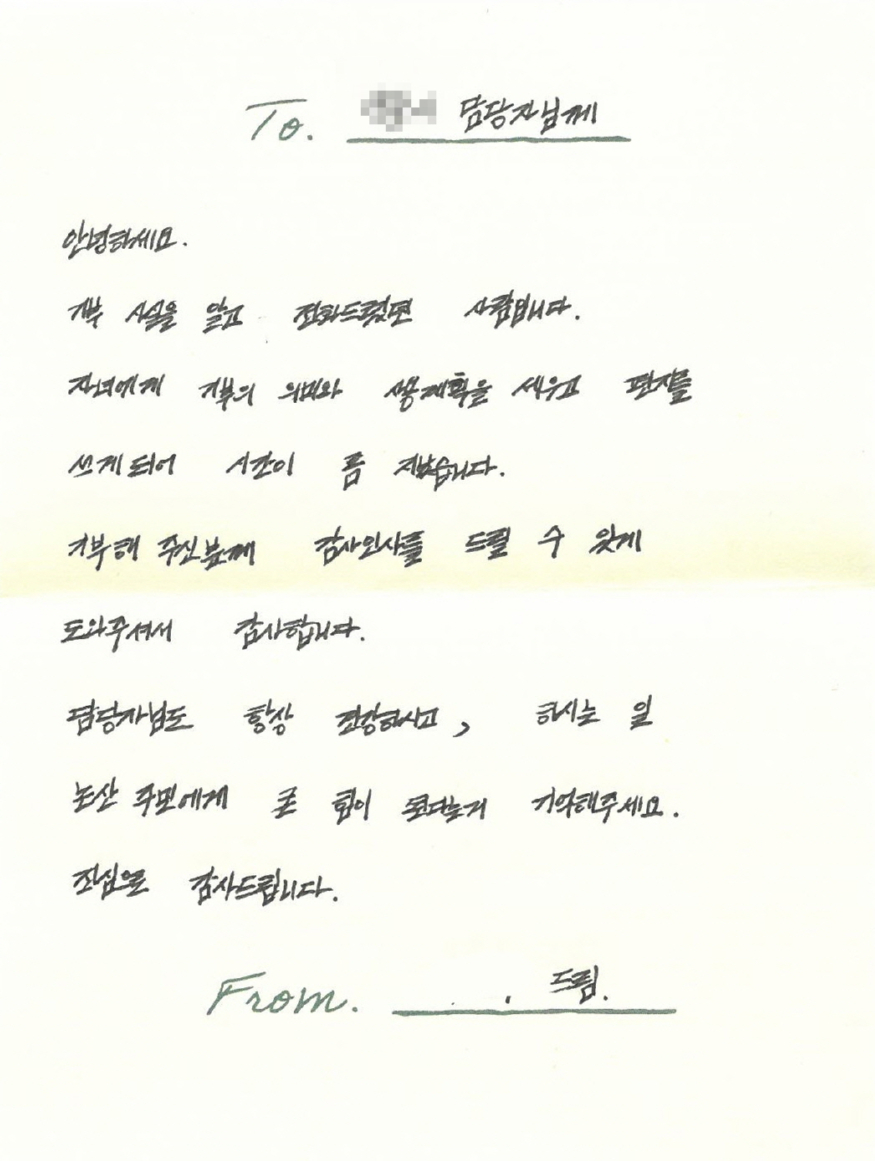 To. 담당자님께
안녕하세요.
기부 사실을 알고 전화드렸던 사람입니다.
자녀에게 기부의 의미와 사용계획을 세우고 편지를
쓰게 되어 시간이 좀 지났습니다.
기부해 주신분께 감사인사를 드릴 수 있게
도와주셔서 감사합니다.
담당자님도 항상 건강하시고, 하시는 일
논산 주민에게 큰 힘이 된다는거 기억해주세요.
진심으로 감사드립니다.
From. 드림.